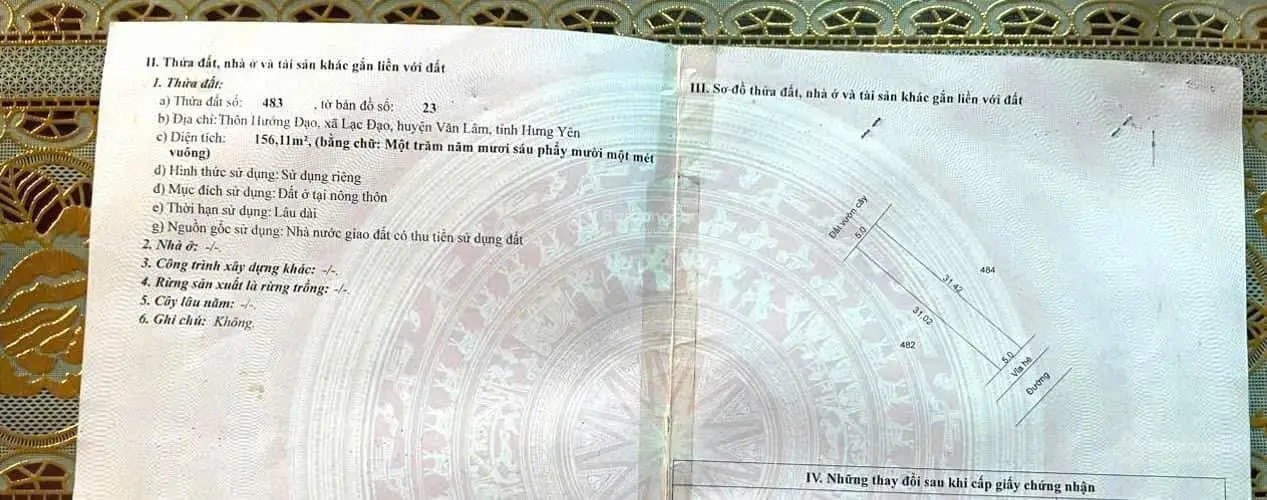 II. Thửa đất, nhà ở và tài sản khác gắn liền với đất
1. Thửa đất:
a) Thửa đất số: 483 , tờ bản đồ số: 23
b) Địa chỉ: Thôn Hướng Đạo, xã Lạc Đạo, huyện Văn Lâm, tỉnh Hưng Yên
c) Diện tích: 156,11m², (bằng chữ: Một trăm năm mươi sáu phẩy mười một mét
vuông)
d) Hình thức sử dụng: Sử dụng riêng
đ) Mục đích sử dụng: Đất ở tại nông thôn
e) Thời hạn sử dụng: Lâu dài
g) Nguồn gốc sử dụng: Nhà nước giao đất có thu tiền sử dụng đất
2. Nhà ở: -/-.
3. Công trình xây dựng khác: -/-.
4. Rừng sản xuất là rừng trồng: -/-.
5. Cây lâu năm: -/-.
6. Ghi chú: Không.
III. Sơ đồ thửa đất, nhà ở và tài sản khác gắn liền với đất
Đất vườn cây
5.0
484
31.42
31.02
482
5.0
Vỉa hè
Đường
IV. Những thay đổi sau khi cấp giấy chứng nhận